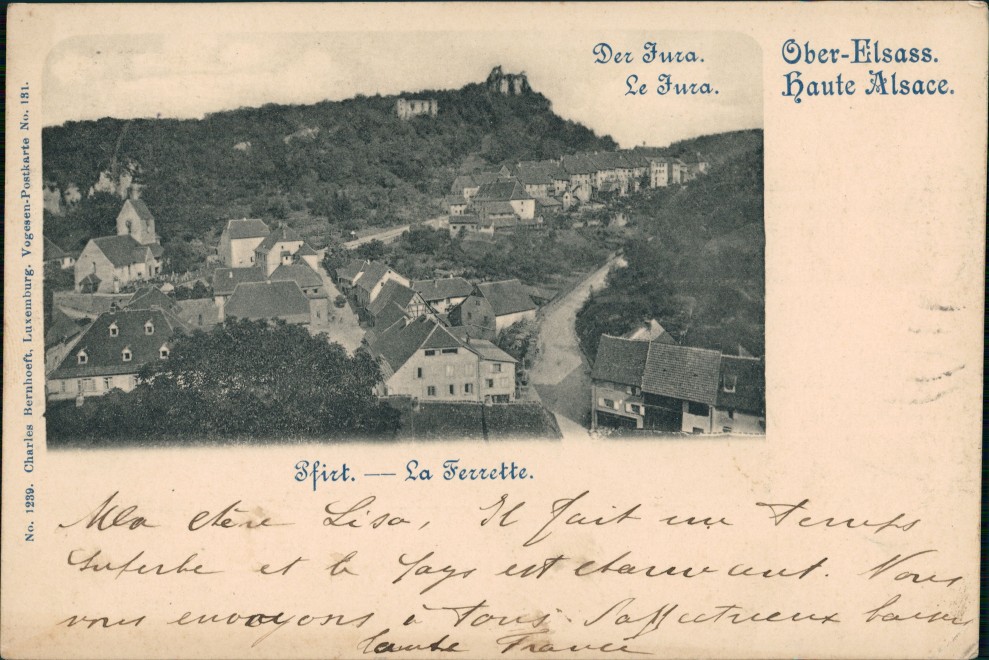 Der Jura.
Le Jura.
Ober-Elsass.
Haute Alsace.
No. 1239. Charles Bernhoeft, Luxemburg. Vogesen-Postkarte No. 131.
Pfirt. — La Ferrette.
Ma chère Lisa, Il fait un Temps
Superbe et le Pays est charmant. Nous
vous envoyons à Tous d'affectueux baisers
France